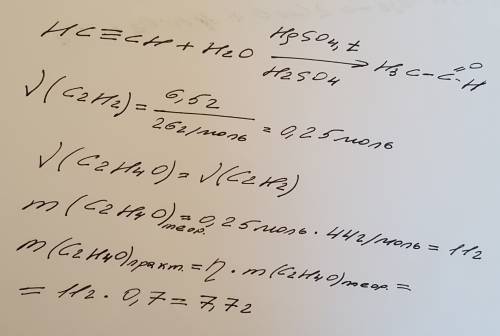 HC≡CH + H2O HgSO4, t H2SO4 → H3C–C=O–H
√(C2H2) = 6,5г / 26г/моль = 0,25моль
√(C2H4O) = √(C2H2)
m(C2H4O)теор. = 0,25моль · 44г/моль = 11г
m(C2H4O)практ. = η · m(C2H4O)теор. =
= 11г · 0,7 = 7,7г